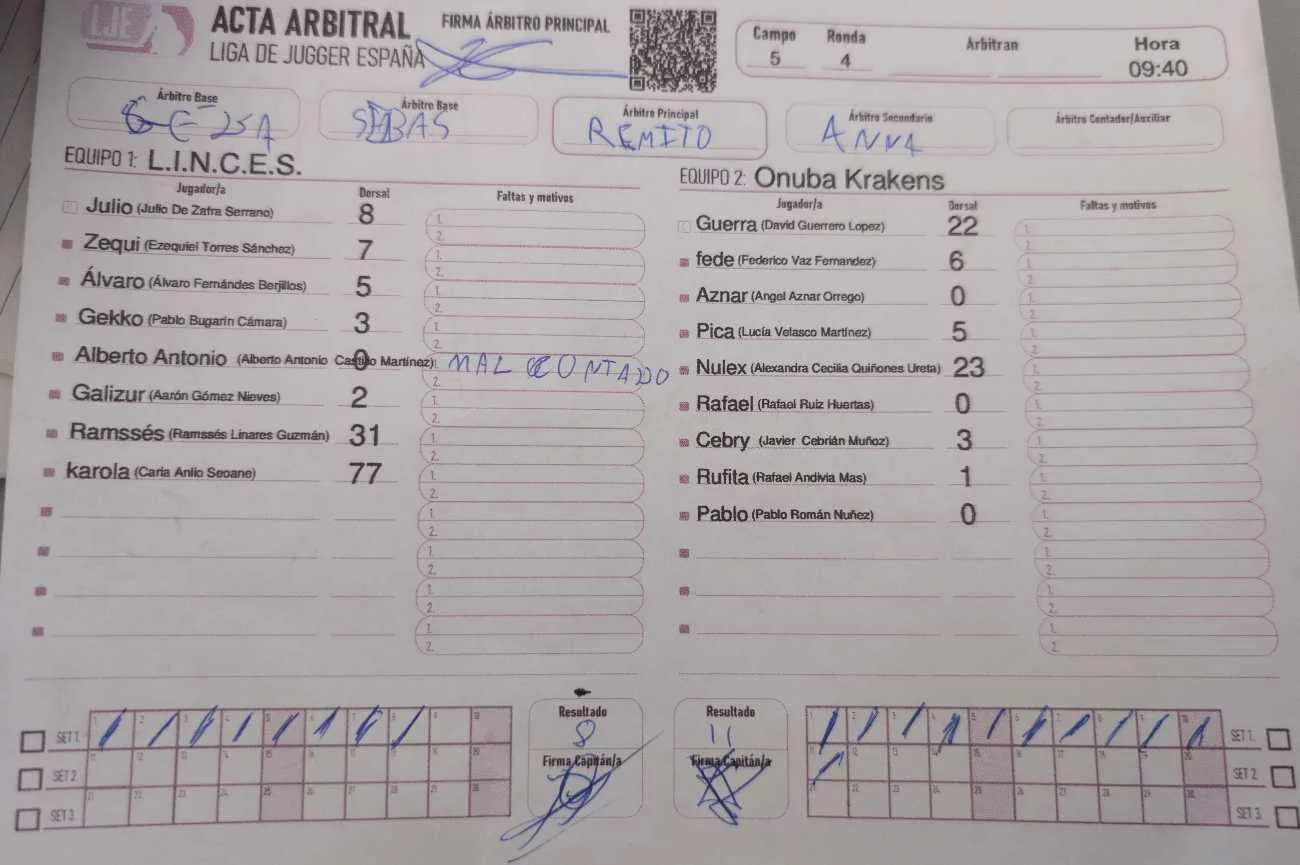 LJE
ACTA ARBITRAL
LIGA DE JUGGER ESPAÑA
FIRMA ÁRBITRO PRINCIPAL
Campo Ronda Arbitran Hora
5 4 09:40
Árbitro Base Árbitro Base Árbitro Principal Árbitro Secundario Árbitro Contador/Auxiliar
SEBAS REMITO ANNA
EQUIPO 1: L.I.N.C.E.S.
Jugador/a Dorsal Faltas y motivos
Julio (Julio De Zafra Serrano) 8 1. 2.
Zequi (Ezequiel Torres Sánchez) 7 1. 2.
Álvaro (Álvaro Fernándes Berjillos) 5 1. 2.
Gekko (Pablo Bugarin Cámara) 3 1. 2.
Alberto Antonio (Alberto Antonio Castillo Martínez) 0 1. MAL CONTADO 2.
Galizur (Aarón Gómez Nieves) 2 1. 2.
Ramssés (Ramssés Linares Guzmán) 31 1. 2.
karola (Carla Anllo Seoane) 77 1. 2.
1. 2.
1. 2.
1. 2.
1. 2.
EQUIPO 2: Onuba Krakens
Jugador/a Dorsal Faltas y motivos
Guerra (David Guerrero Lopez) 22 1. 2.
fede (Federico Vaz Fernandez) 6 1. 2.
Aznar (Angel Aznar Orrego) 0 1. 2.
Pica (Lucía Velasco Martínez) 5 1. 2.
Nulex (Alexandra Cecilia Quiñones Ureta) 23 1. 2.
Rafael (Rafael Ruiz Huertas) 0 1. 2.
Cebry (Javier Cebrián Muñoz) 3 1. 2.
Rufita (Rafael Andivia Mas) 1 1. 2.
Pablo (Pablo Román Nuñez) 0 1. 2.
1. 2.
1. 2.
1. 2.
SET 1. 1 2 3 4 5 6 7 8 9 10
SET 2 11 12 13 14 15 16 17 18 19 20
SET 3 21 22 23 24 25 26 27 28 29 30
Resultado
8
Firma Capitán/a
Resultado
11
Firma Capitán/a
1 2 3 4 5 6 7 8 9 10 SET 1.
11 12 13 14 15 16 17 18 19 20 SET 2
21 22 23 24 25 26 27 28 29 30 SET 3